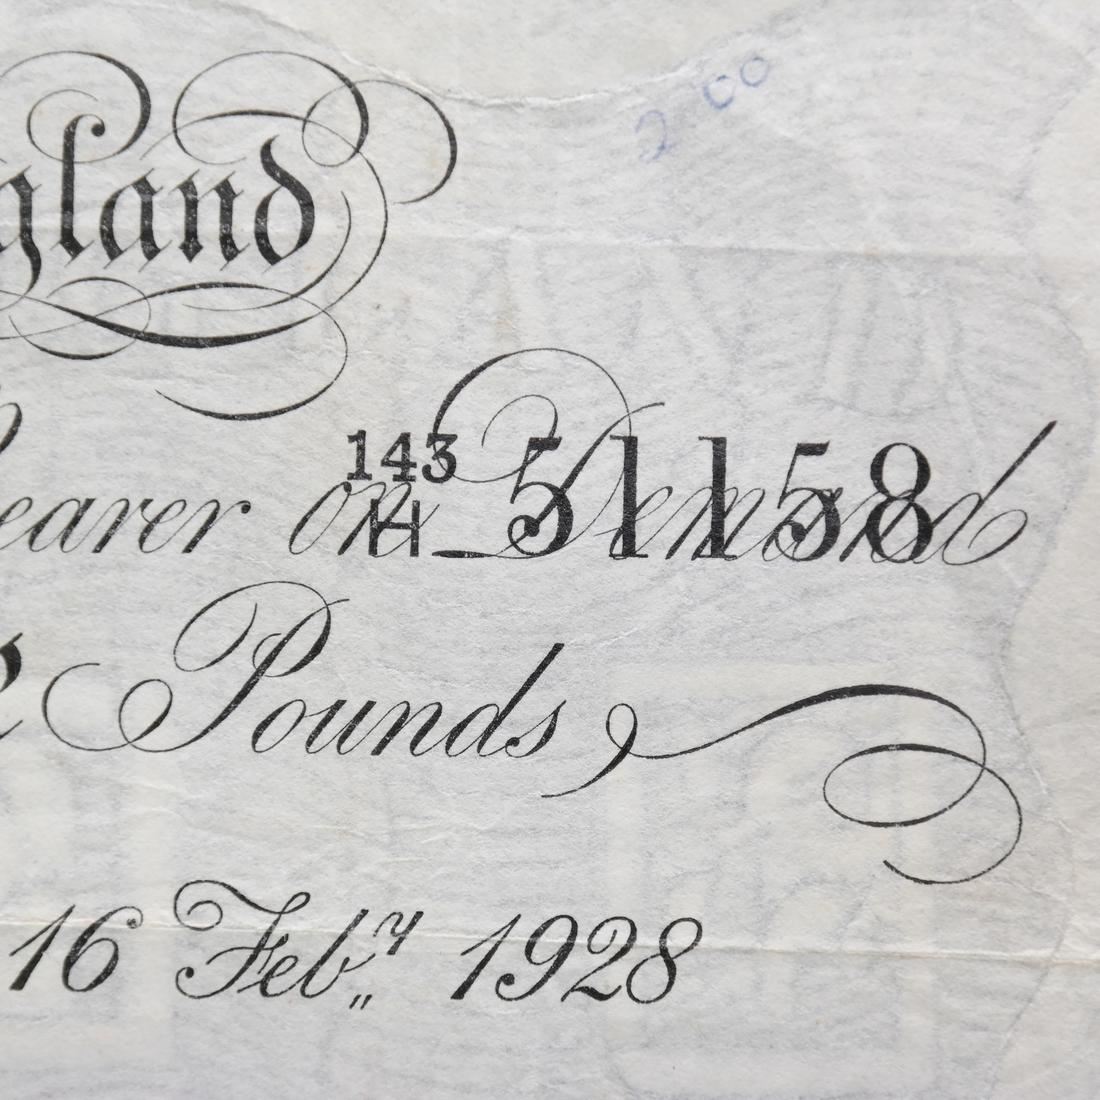 2 00
gland
143 51158
H
earer on Demand
Pounds
16 Feb.ry 1928